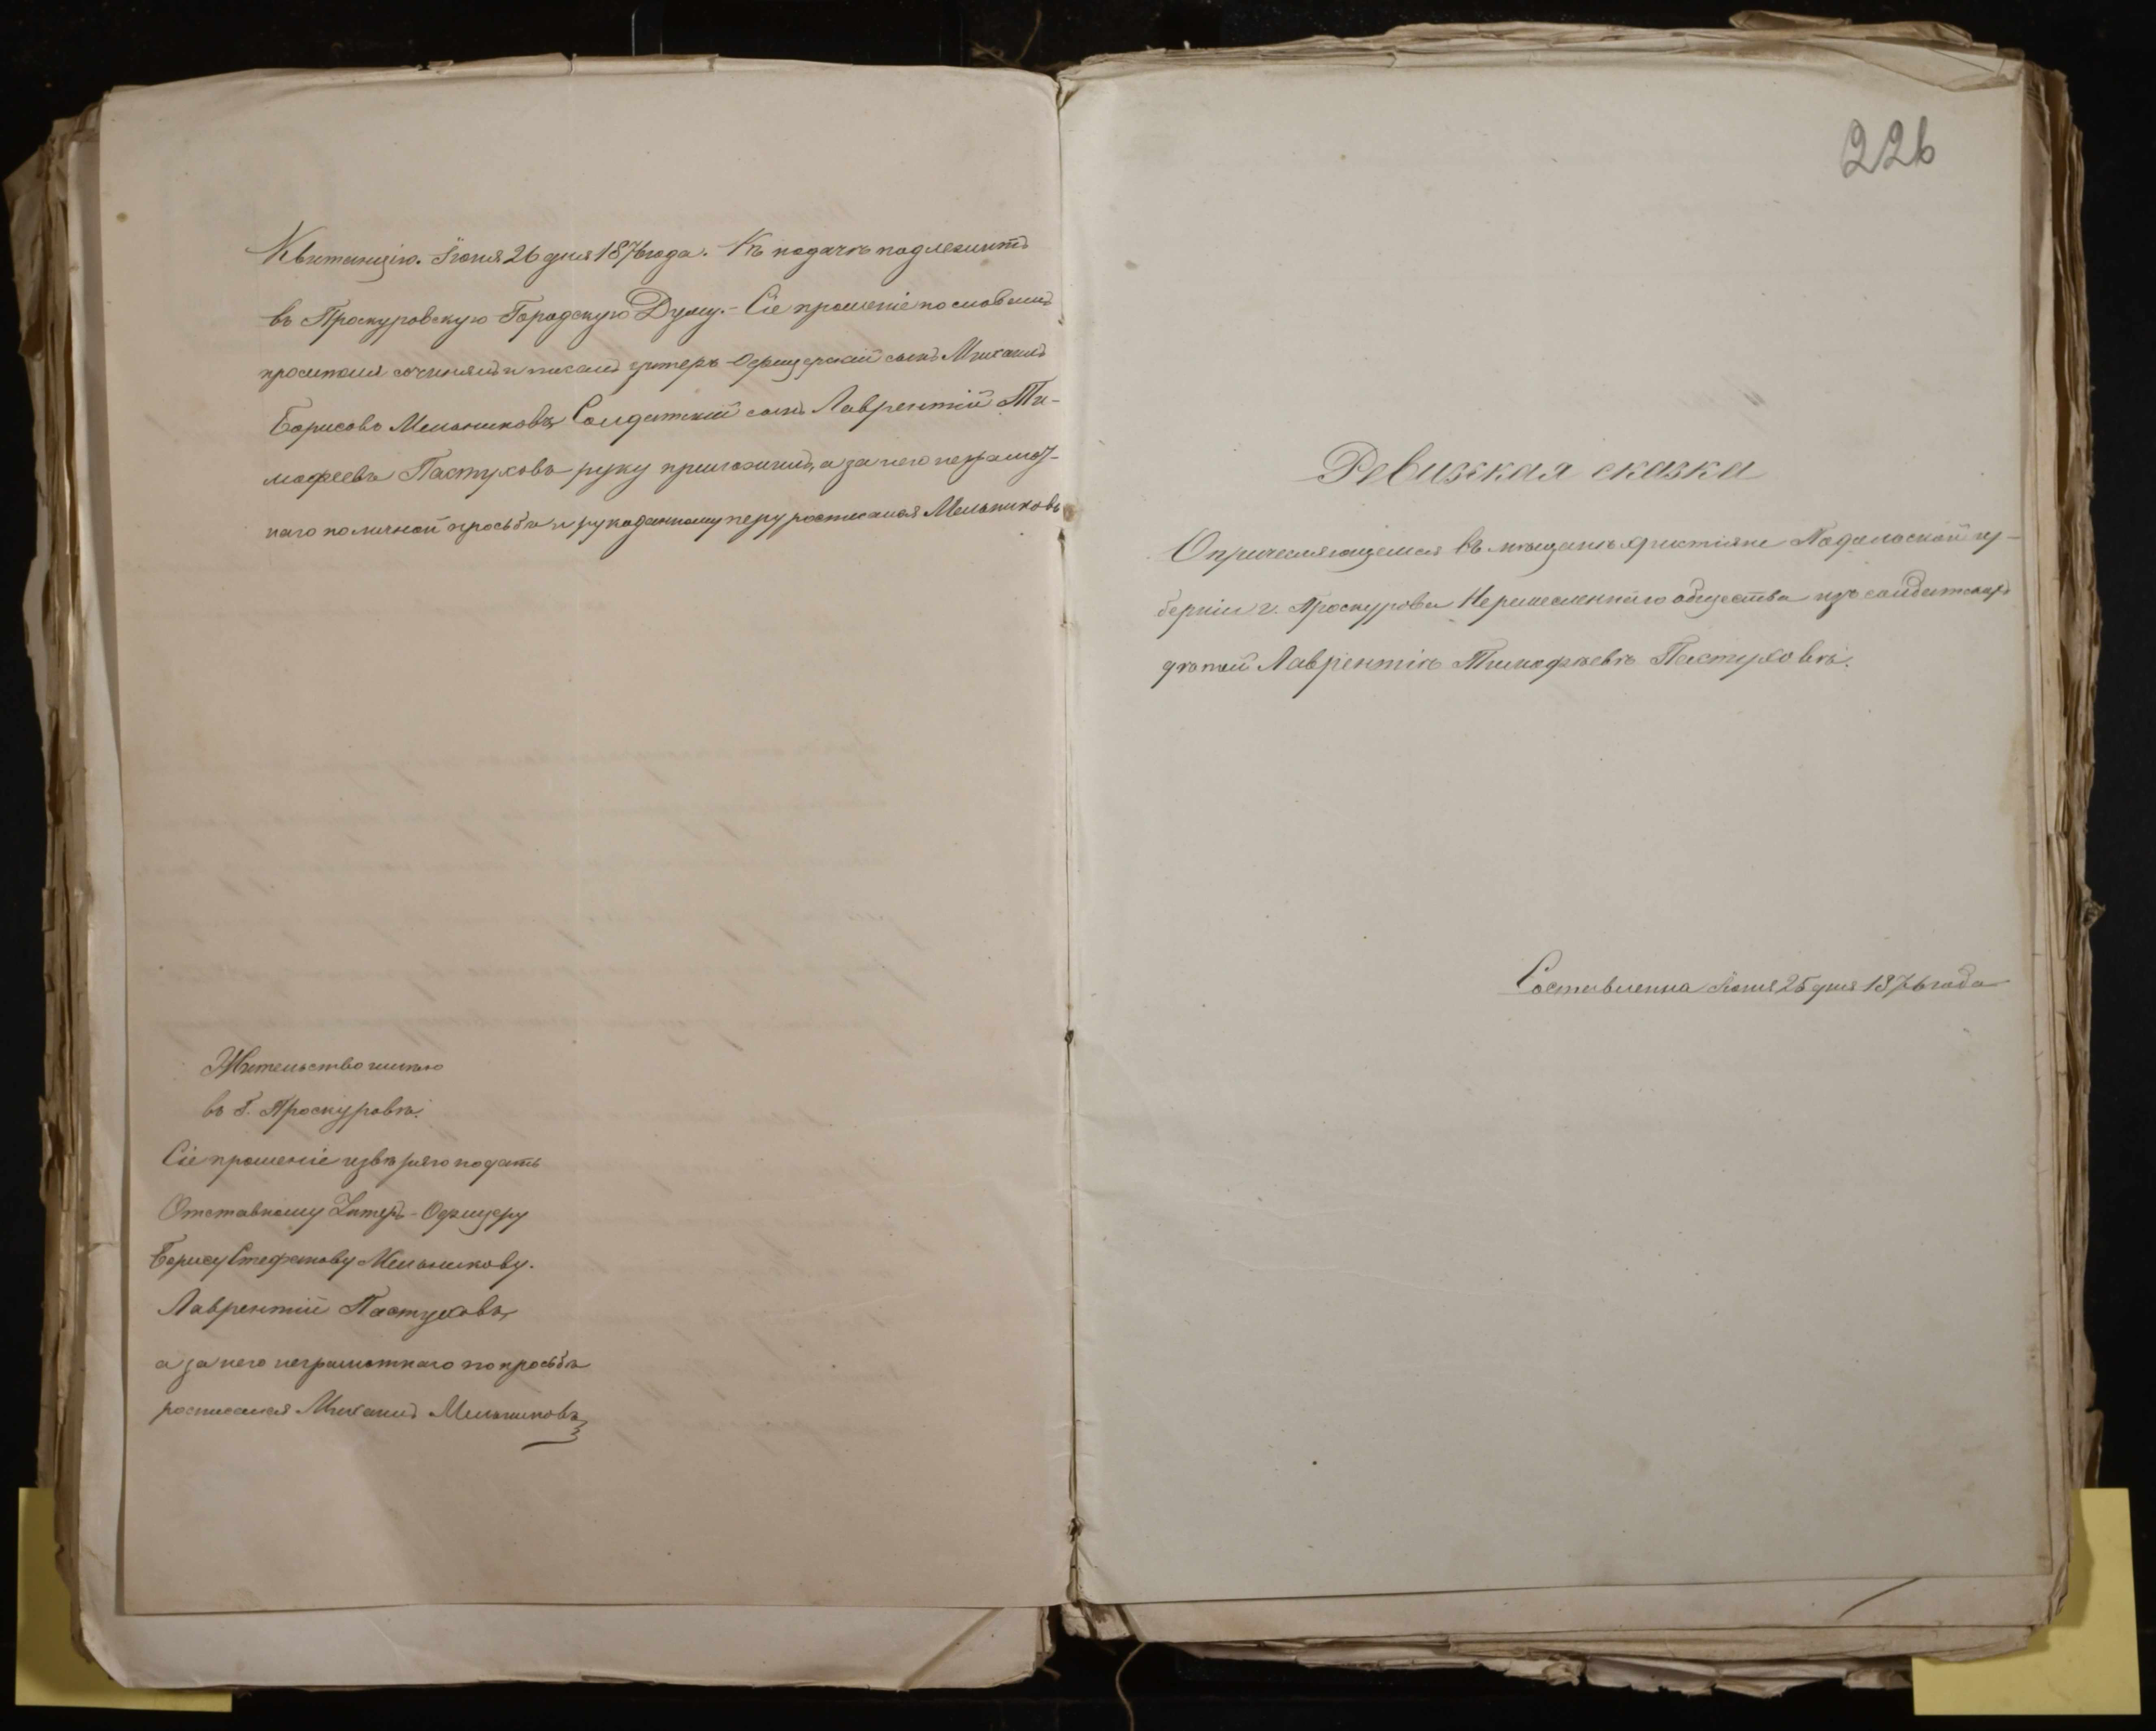 Квитанцію. Іюня 26 дня 1876 года. Къ подачѣ подлежитъ
въ Проскуровскую Городскую Думу. - Сіе прошеніе по словамъ
просителя сочинялъ и писалъ унтеръ-Офицерскій сынъ Михаилъ
Борисовъ Мельниковъ, Солдатскій сынъ Лаврентій Ти-
мофеевъ Пастуховъ руку приложилъ, а за него неграмот-
наго по личной просьбѣ и рукоданному перу росписался Мельниковъ
Жительство имѣю
въ Г. Проскуровѣ.
Сіе прошеніе подать
Отставному Унтеръ-Офицеру
Борису Стефанову Мельникову.
Лаврентій Пастуховъ,
а за него неграмотнаго по просьбѣ
росписался Михаилъ Мельниковъ
226
Ревизская сказка
О причисляющемся въ мещане христіяне Подольской гу-
берніи г. Проскурова общества изъ солдатскихъ
дѣтей Лаврентіѣ Тимофѣевѣ Пастуховѣ.
Составленна Іюня 25 дня 1876 года